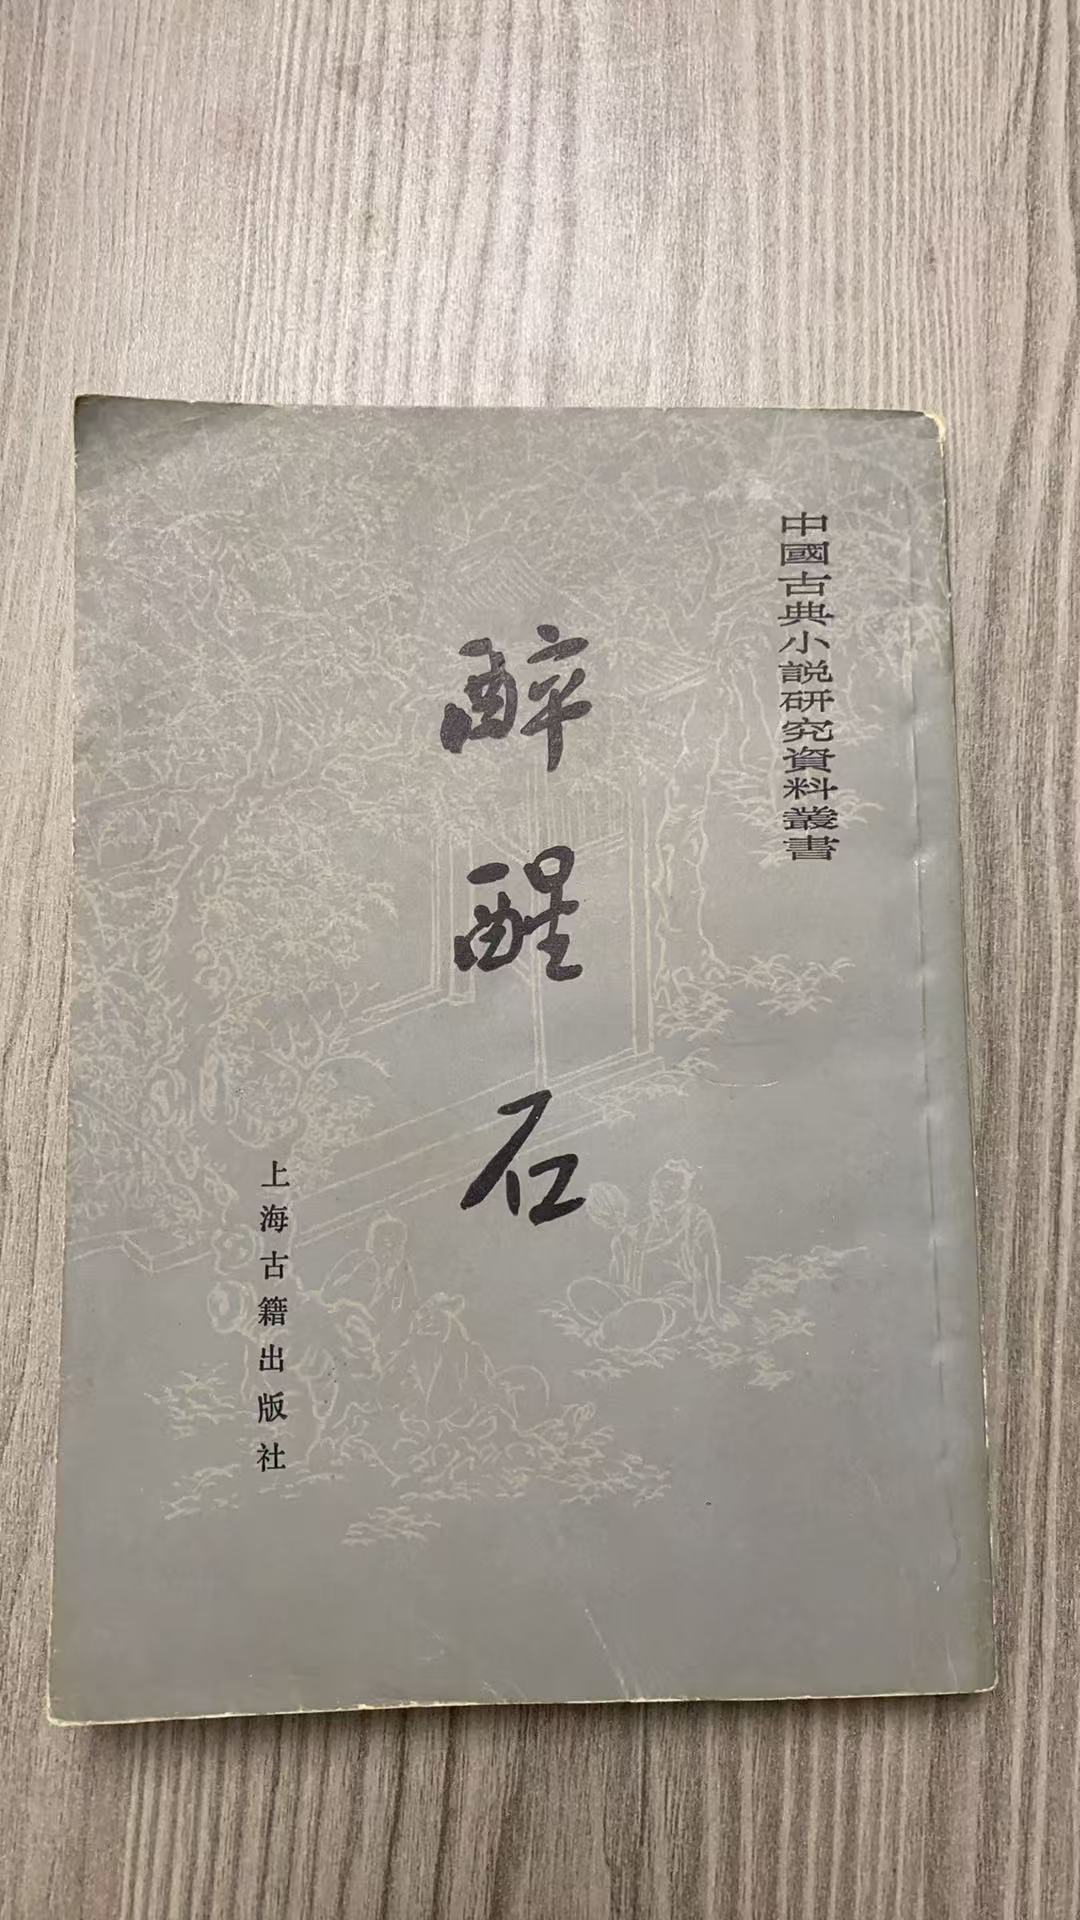 中國古典小説研究資料叢書
醉醒石
上海古籍出版社